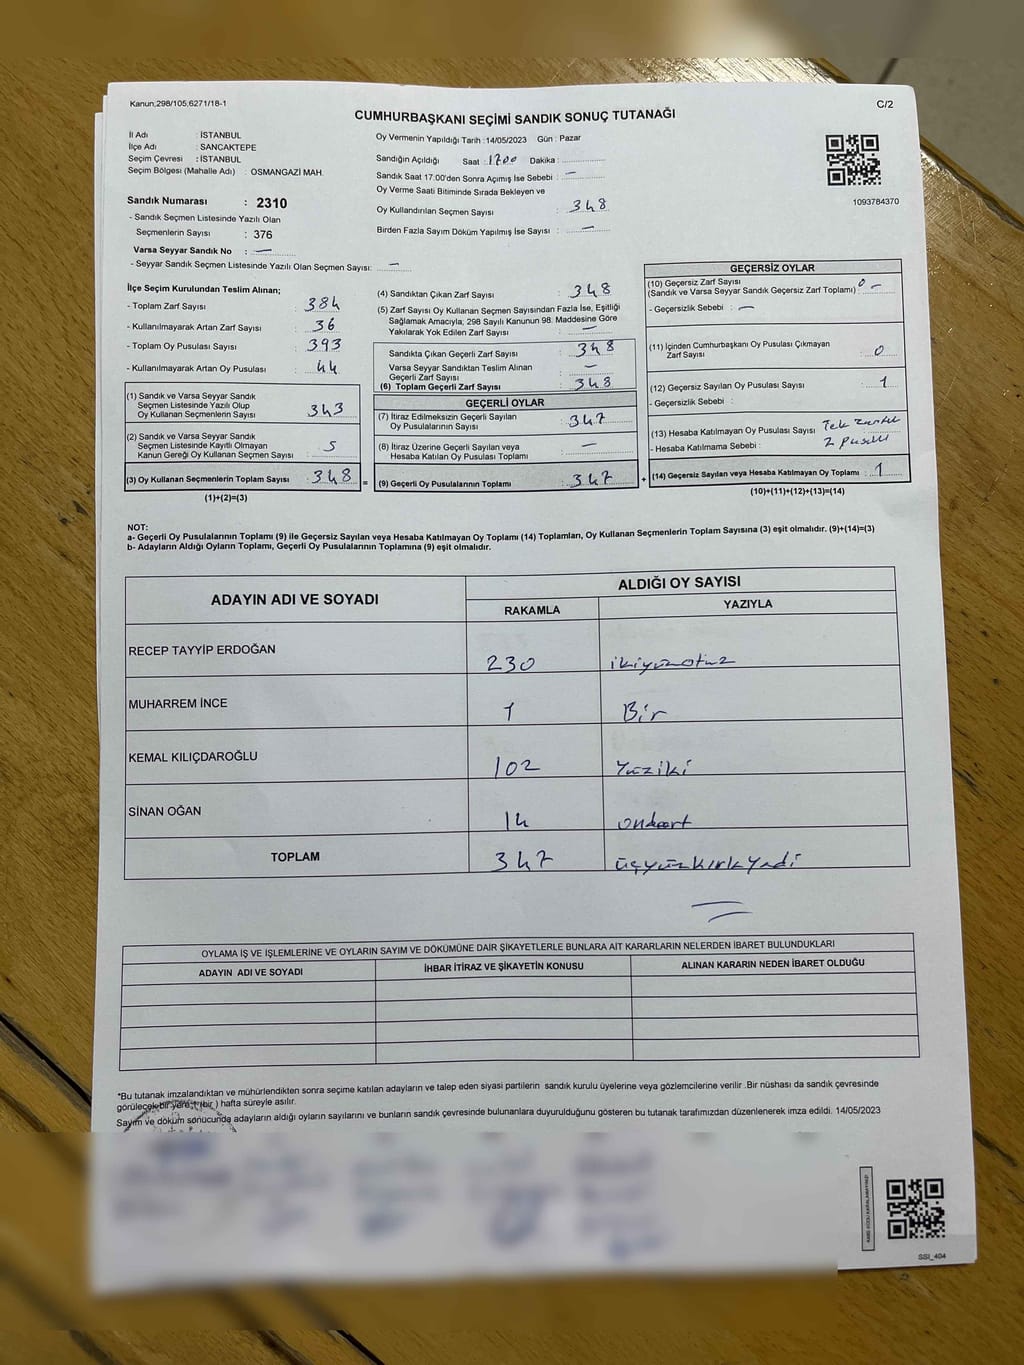 Kanun,298/105;6271/18-1
C/2
CUMHURBAŞKANI SEÇİMİ SANDIK SONUÇ TUTANAĞI
İl Adı : İSTANBUL
İlçe Adı : SANCAKTEPE
Seçim Çevresi : İSTANBUL
Seçim Bölgesi (Mahalle Adı) : OSMANGAZİ MAH.
Sandık Numarası : 2310
- Sandık Seçmen Listesinde Yazılı Olan
Seçmenlerin Sayısı : 376
Varsa Seyyar Sandık No : —
- Seyyar Sandık Seçmen Listesinde Yazılı Olan Seçmen Sayısı: —
Oy Vermenin Yapıldığı Tarih :14/05/2023 Gün : Pazar
Sandığın Açıldığı Saat : 1700 Dakika :
Sandık Saat 17:00'den Sonra Açımış İse Sebebi : —
Oy Verme Saati Bitiminde Sırada Bekleyen ve
Oy Kullandırılan Seçmen Sayısı : 348
Birden Fazla Sayım Döküm Yapılmış İse Sayısı : —
1093784370
İlçe Seçim Kurulundan Teslim Alınan;
- Toplam Zarf Sayısı : 384
- Kullanılmayarak Artan Zarf Sayısı : 36
- Toplam Oy Pusulası Sayısı : 393
- Kullanılmayarak Artan Oy Pusulası : 44
(1) Sandık ve Varsa Seyyar Sandık
Seçmen Listesinde Yazılı Olup
Oy Kullanan Seçmenlerin Sayısı : 343
(2) Sandık ve Varsa Seyyar Sandık
Seçmen Listesinde Kayıtlı Olmayan
Kanun Gereği Oy Kullanan Seçmen Sayısı : 5
(3) Oy Kullanan Seçmenlerin Toplam Sayısı : 348
(1)+(2)=(3)
(4) Sandıktan Çıkan Zarf Sayısı : 348
(5) Zarf Sayısı Oy Kullanan Seçmen Sayısından Fazla İse, Eşitliği
Sağlamak Amacıyla, 298 Sayılı Kanunun 98. Maddesine Göre
Yakılarak Yok Edilen Zarf Sayısı : —
Sandıkta Çıkan Geçerli Zarf Sayısı : 348
Varsa Seyyar Sandıktan Teslim Alınan
Geçerli Zarf Sayısı : —
(6) Toplam Geçerli Zarf Sayısı : 348
GEÇERLİ OYLAR
(7) İtiraz Edilmeksizin Geçerli Sayılan
Oy Pusulalarının Sayısı : 347
(8) İtiraz Üzerine Geçerli Sayılan veya
Hesaba Katılan Oy Pusulası Toplamı : —
= (9) Geçerli Oy Pusulalarının Toplamı : 347
GEÇERSİZ OYLAR
(10) Geçersiz Zarf Sayısı
(Sandık ve Varsa Seyyar Sandık Geçersiz Zarf Toplamı) : 0 –
- Geçersizlik Sebebi : —
(11) İçinden Cumhurbaşkanı Oy Pusulası Çıkmayan
Zarf Sayısı : 0
(12) Geçersiz Sayılan Oy Pusulası Sayısı : 1
- Geçersizlik Sebebi :
(13) Hesaba Katılmayan Oy Pusulası Sayısı : Tek zarfta
- Hesaba Katılmama Sebebi : 2 pusula
+ (14) Geçersiz Sayılan veya Hesaba Katılmayan Oy Toplamı : 1
(10)+(11)+(12)+(13)=(14)
NOT:
a- Geçerli Oy Pusulalarının Toplamı (9) ile Geçersiz Sayılan veya Hesaba Katılmayan Oy Toplamı (14) Toplamları, Oy Kullanan Seçmenlerin Toplam Sayısına (3) eşit olmalıdır. (9)+(14)=(3)
b- Adayların Aldığı Oyların Toplamı, Geçerli Oy Pusulalarının Toplamına (9) eşit olmalıdır.
ADAYIN ADI VE SOYADI
ALDIĞI OY SAYISI
RAKAMLA YAZIYLA
RECEP TAYYİP ERDOĞAN 230 ikiyüzotuz
MUHARREM İNCE 1 Bir
KEMAL KILIÇDAROĞLU 102 Yüziki
SİNAN OĞAN 14 ondört
TOPLAM 347 üçyüzkırkyedi
OYLAMA İŞ VE İŞLEMLERİNE VE OYLARIN SAYIM VE DÖKÜMÜNE DAİR ŞİKAYETLERLE BUNLARA AİT KARARLARIN NELERDEN İBARET BULUNDUKLARI
ADAYIN ADI VE SOYADI İHBAR İTİRAZ VE ŞİKAYETİN KONUSU ALINAN KARARIN NEDEN İBARET OLDUĞU
*Bu tutanak imzalandıktan ve mühürlendikten sonra seçime katılan adayların ve talep eden siyasi partilerin sandık kurulu üyelerine veya gözlemcilerine verilir .Bir nüshası da sandık çevresinde
görülecek bir yere 1 (bir ) hafta süreyle asılır.
Sayım ve döküm sonucunda adayların aldığı oyların sayılarını ve bunların sandık çevresinde bulunanlara duyurulduğunu gösteren bu tutanak tarafımızdan düzenlenerek imza edildi. 14/05/2023
SSI_404